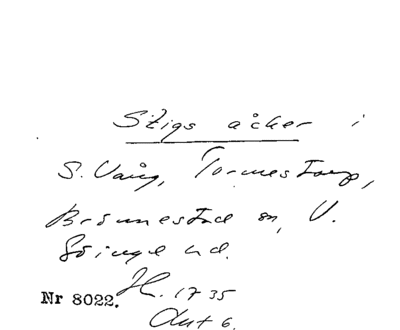 Stigs åker i
S. Vång, Tormestorp,
Brönnestad sn, V.
Göinge hd.
H. 1735
Akt 6.
Nr 8022.